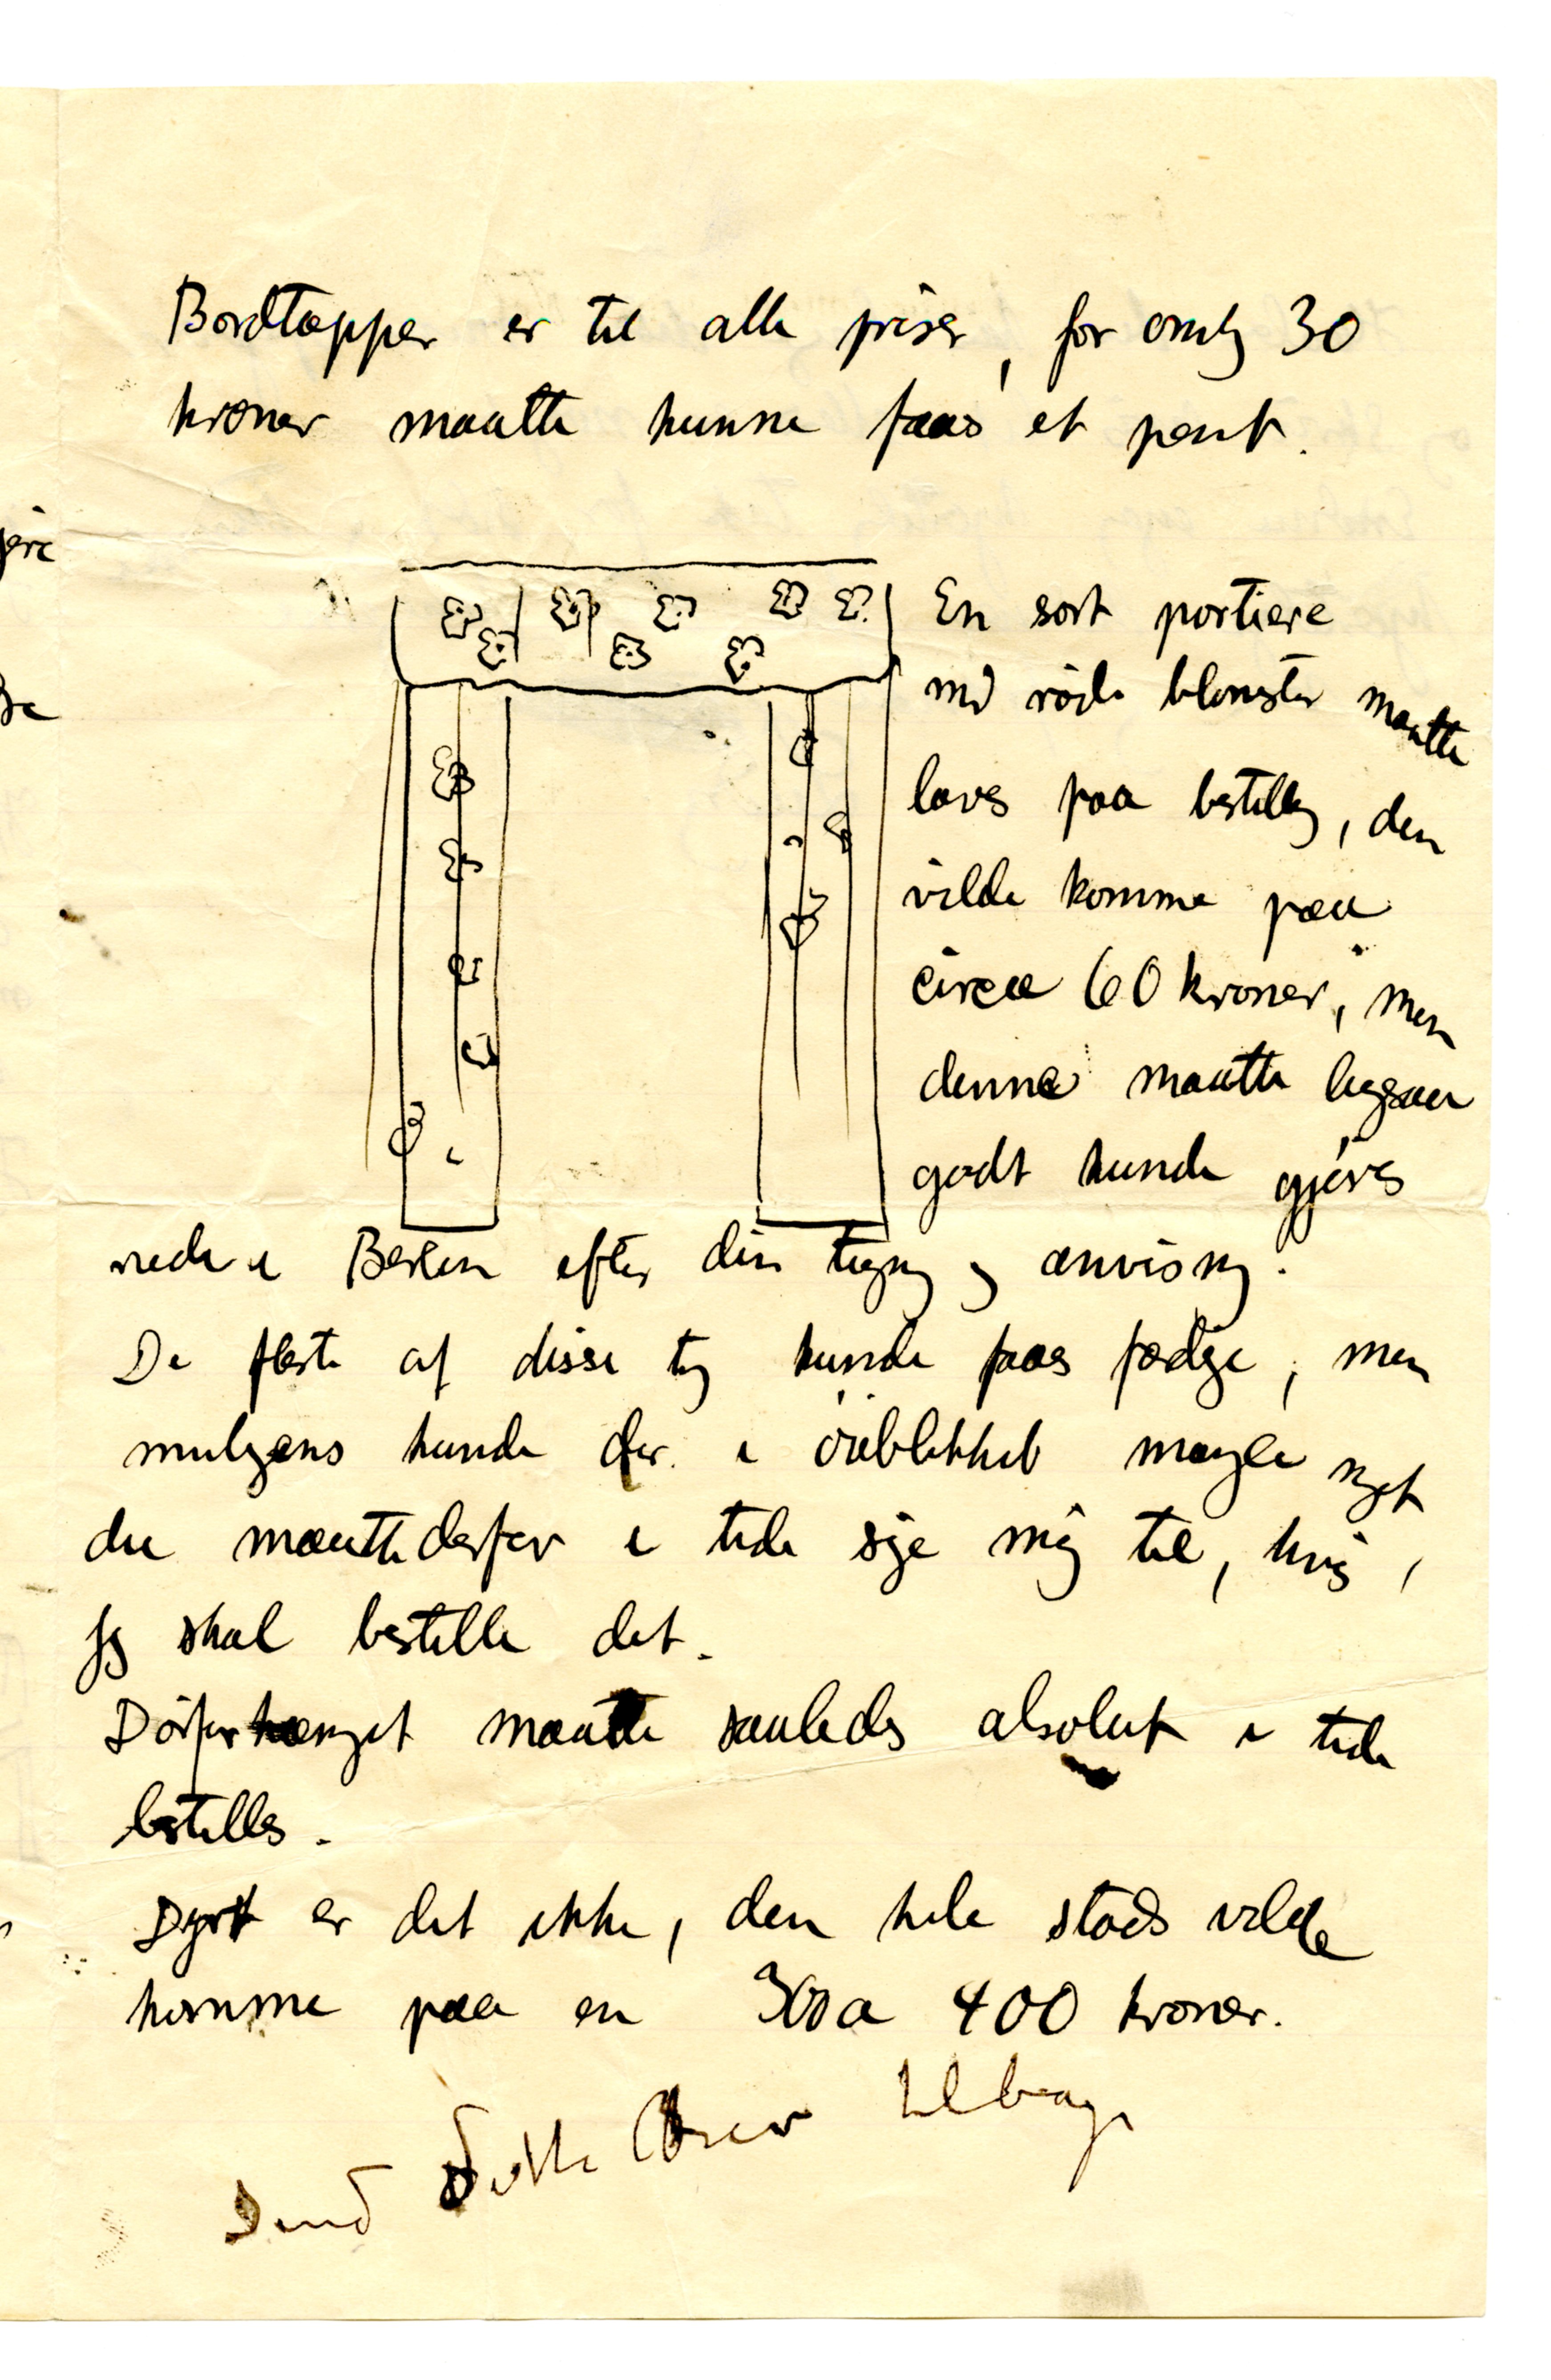 Bordtæpper er til alle priser, for omtr 30
kroner maatte kunne faaes et pent.
En sort portiere
md røde blomster maatte
laves paa bestilling, den
vilde komme paa
circa 60 kroner, men
denne maatte ligesaa
godt kunde gjøres
nede i Berlin efter din tegng og anvisng.
De fleste af disse tg kunde faaes færdige, men
muligens kunde der i øieblikket mangle noget
du maatte derfor i tide sige mig til, hvis
jeg skal bestille det.
Dørforhænget maatte saaledes absolut i tide
bestilles.
Dyrt er det ikke, den hele stads vilde
komme paa en 300 a 400 kroner.
Send dette Brev tilbage